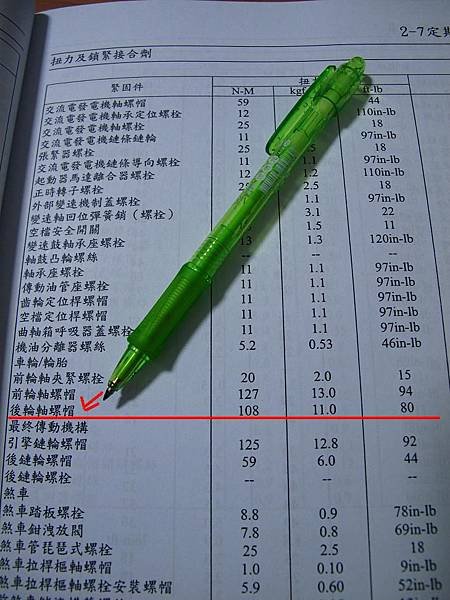 2-7定期
扭力及鎖緊接合劑
緊固件 扭
N-M kgf ft-lb
交流電發電機軸螺帽 59 44
交流電發電機軸承定位螺栓 12 110in-lb
交流電發電機螺栓 25 18
交流電發電機鏈條鏈輪 11 97in-lb
張緊器螺栓 25 18
交流電發電機鏈條導向螺栓 11 1.1 97in-lb
起動器馬達離合器螺栓 12 1.2 110in-lb
正時轉子螺栓 2.5 18
外部變速機制蓋螺栓 1.1 97in-lb
變速軸回位彈簧銷（螺栓） 3.1 22
空檔安全開關 1.5 11
變速鼓軸承座螺栓 13 1.3 120in-lb
軸鼓凸輪螺絲 -- -- --
軸承座螺栓 11 1.1 97in-lb
傳動油管座螺栓 11 1.1 97in-lb
齒輪定位桿螺帽 11 1.1 97in-lb
空檔定位桿螺帽 11 1.1 97in-lb
曲軸箱呼吸器蓋螺栓 11 1.1 97in-lb
機油分離器螺絲 5.2 0.53 46in-lb
車輪/輪胎
前輪軸夾緊螺栓 20 2.0 15
前輪軸螺帽 127 13.0 94
後輪軸螺帽 108 11.0 80
最終傳動機構
引擎鏈輪螺帽 125 12.8 92
後鏈輪螺帽 59 6.0 44
後鏈輪螺栓 -- -- --
煞車
煞車踏板螺栓 8.8 0.9 78in-lb
煞車鉗洩放閥 7.8 0.8 69in-lb
煞車管琵琶式螺栓 25 2.5 18
煞車拉桿樞軸螺帽 1.0 0.10 9in-lb
煞車拉桿樞軸螺栓安裝螺帽 5.9 0.60 52in-lb